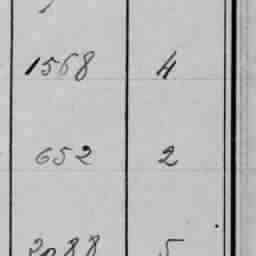 1568 4
652 2
2088 5